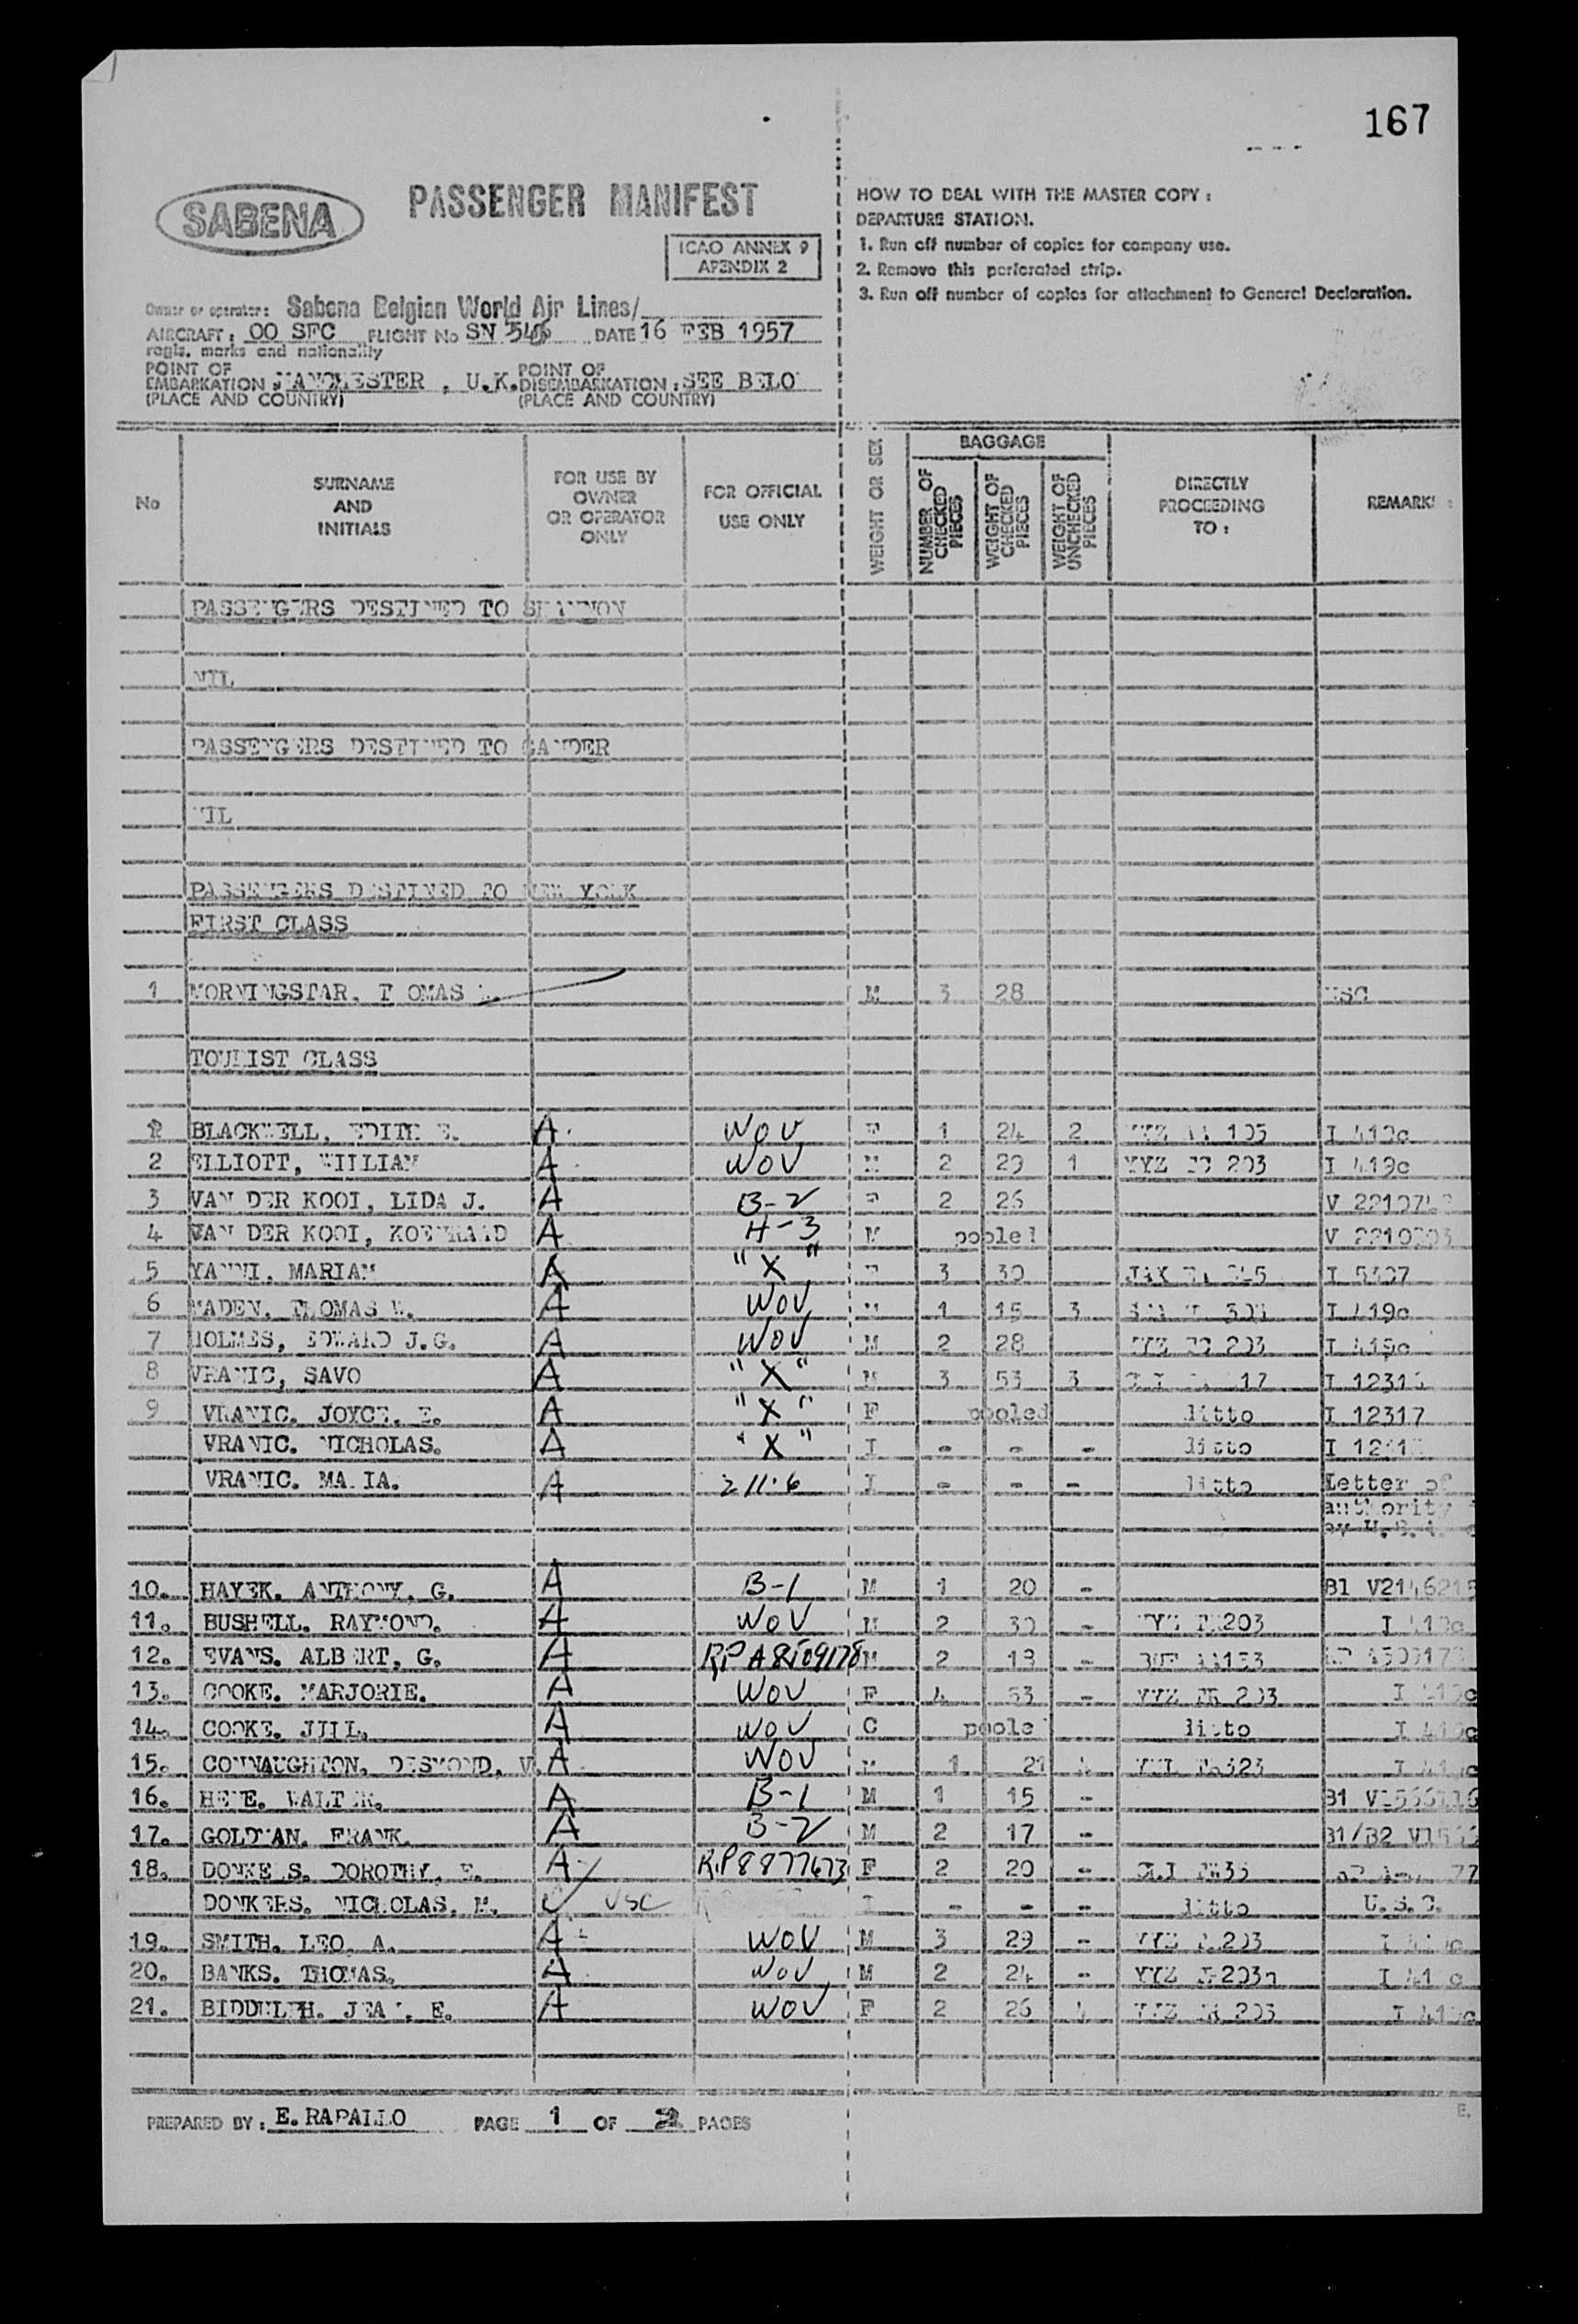 167
SABENA
PASSENGER MANIFEST
ICAO ANNEX 9
APENDIX 2
HOW TO DEAL WITH THE MASTER COPY :
DEPARTURE STATION.
1. Run off number of copies for company use.
2. Remove this perforated strip.
3. Run off number of copies for attachment to General Declaration.
Owner or operator: Sabena Belgian World Air Lines/
AIRCRAFT: OO SFC FLIGHT No SN 545 DATE 16 FEB 1957
regis. marks and nationality
POINT OF EMBARKATION : MANCHESTER , U.K. POINT OF DISEMBARKATION : SEE BELO
(PLACE AND COUNTRY) (PLACE AND COUNTRY)
No
SURNAME AND INITIALS
FOR USE BY OWNER OR OPERATOR ONLY
FOR OFFICIAL USE ONLY
WEIGHT OR SEX
BAGGAGE
NUMBER OF CHECKED PIECES
WEIGHT OF CHECKED PIECES
WEIGHT OF UNCHECKED PIECES
DIRECTLY PROCEEDING TO :
REMARKS :
PASSENGERS DESTINED TO SHANNON
NIL
PASSENGERS DESTINED TO GANDER
NIL
PASSENGERS DESTINED TO NEW YORK
FIRST CLASS
1 MORNINGSTAR, T OMAS M 3 28 USC
TOURIST CLASS
BLACKWELL, EDITH E. A WOV F 1 24 2 I 419c
2 ELLIOTT, WILLIAM A WOV M 2 29 1 YYZ 203 I 419c
3 VAN DER KOOI, LIDA J. A B-2 F 2 26
4 VAN DER KOOI, KOENRAAD A H-3 M pooled
5 YANNI, MARIAM A "X" F 3 30 I 5307
6 MADEN, THOMAS W. A WOV M 1 15 3 I 419c
7 HOLMES, EDWARD J.G. A WOV M 2 28 YYZ 203 I 419c
8 VRANIC, SAVO A "X" M 3 53 3
9 VRANIC. JOYCE. E. A "X" F pooled ditto I 12317
VRANIC. NICHOLAS. A "X" I - - - ditto
VRANIC. MA IA. A 211.6 I - - - ditto Letter of authority
10. HAYEK. ANTHONY, G. A B-1 M 1 20 -
11. BUSHELL. RAYMOND. A WOV M 2 30 - 203
12. EVANS. ALBERT, G. A RP A8109178 M 2 18 -
13. COOKE. MARJORIE. A WOV F 4 53 - YYZ 203
14. COOKE. JILL. A WOV C poole ditto
15. CONNAUGHTON. DESMOND, V. A WOV M 1 21
16. A B-1 M 1 15 -
17. GOLDMAN. FRANK. A B-2 M 2 17 -
18. DONKERS. DOROTHY, E. A RP8877673 F 2 20 -
DONKERS. NICHOLAS. M. USC I - - - ditto U.S.C.
19. SMITH. LEO. A. A WOV M 3 29 - YYZ 203
20. BANKS. THOMAS. A WOV M 2 24 - YYZ
21. BIDDULPH. JEA , E. A WOV F 2 26 4 YYZ 203
PREPARED BY : E. RAPALLO PAGE 1 OF 2 PAGES